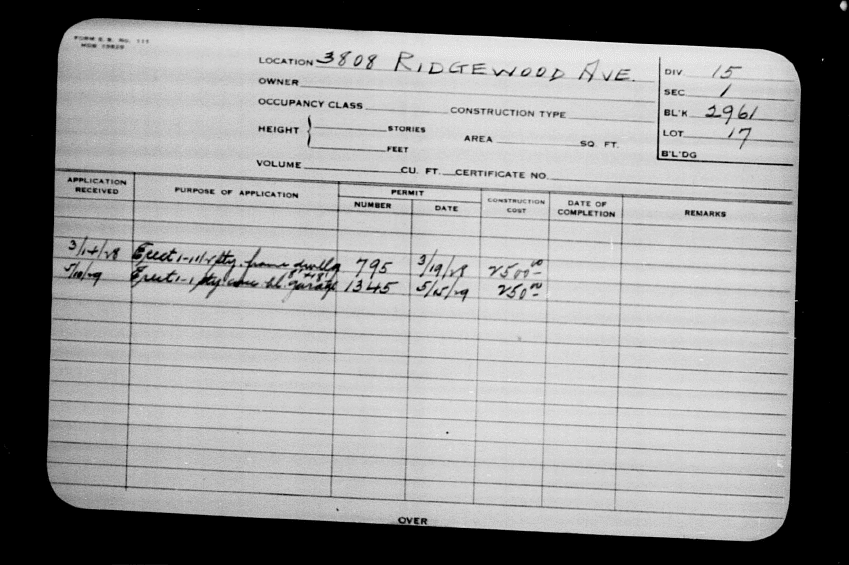 FORM E. B. NO. 111
LOCATION 3808 RIDGEWOOD AVE.
DIV. 15
OWNER
SEC. 1
OCCUPANCY CLASS CONSTRUCTION TYPE
BL'K 2961
HEIGHT { STORIES AREA SQ. FT.
LOT 17
FEET
B'L'DG
VOLUME CU. FT. CERTIFICATE NO.
APPLICATION RECEIVED PURPOSE OF APPLICATION PERMIT CONSTRUCTION COST DATE OF COMPLETION REMARKS
NUMBER DATE
3/14/28 Erect 1-1 1/2 sty. frame dwllg 795 3/19/28 2500 00
8 x 18
5/10/29 Erect 1-1 sty conc. bl. garage 1345 5/15/29 250 00
OVER